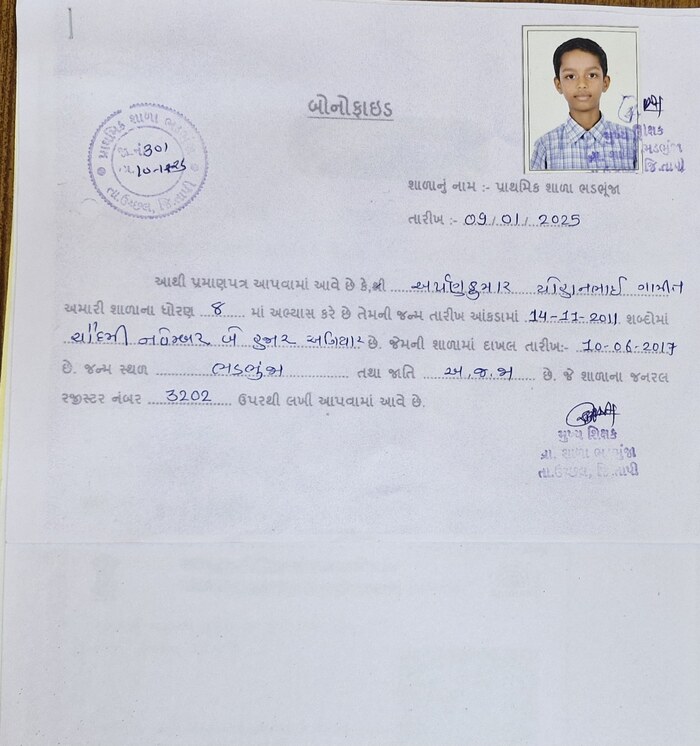 બોનોફાઇડ
પ્રાથમિક શાળા
જા.નં 301
તા.ઉચ્છલ, જિ.તાપી
મુખ્ય શિક્ષક
ભડભુંજા
જિ.તાપી
શાળાનું નામ :- પ્રાથમિક શાળા ભડભૂંજા
તારીખ :- 09/01/ 2025
આથી પ્રમાણપત્ર આપવામાં આવે છે કે, શ્રી અર્પણકુમાર યોહાનભાઈ ગામીત
અમારી શાળાના ધોરણ 8 માં અભ્યાસ કરે છે તેમની જન્મ તારીખ આંકડામાં 14-11-2011 શબ્દોમાં
ચૌદમી નવેમ્બર બે હજાર અગિયાર છે. જેમની શાળામાં દાખલ તારીખ:- 10-06-2017
છે. જન્મ સ્થળ ભડભુંજા તથા જાતિ અ.જ.જા છે. જે શાળાના જનરલ
રજીસ્ટર નંબર 3202 ઉપરથી લખી આપવામાં આવે છે.
મુખ્ય શિક્ષક
પ્રા. શાળા ભડભુંજા
તા.ઉચ્છલ, જિ.તાપી